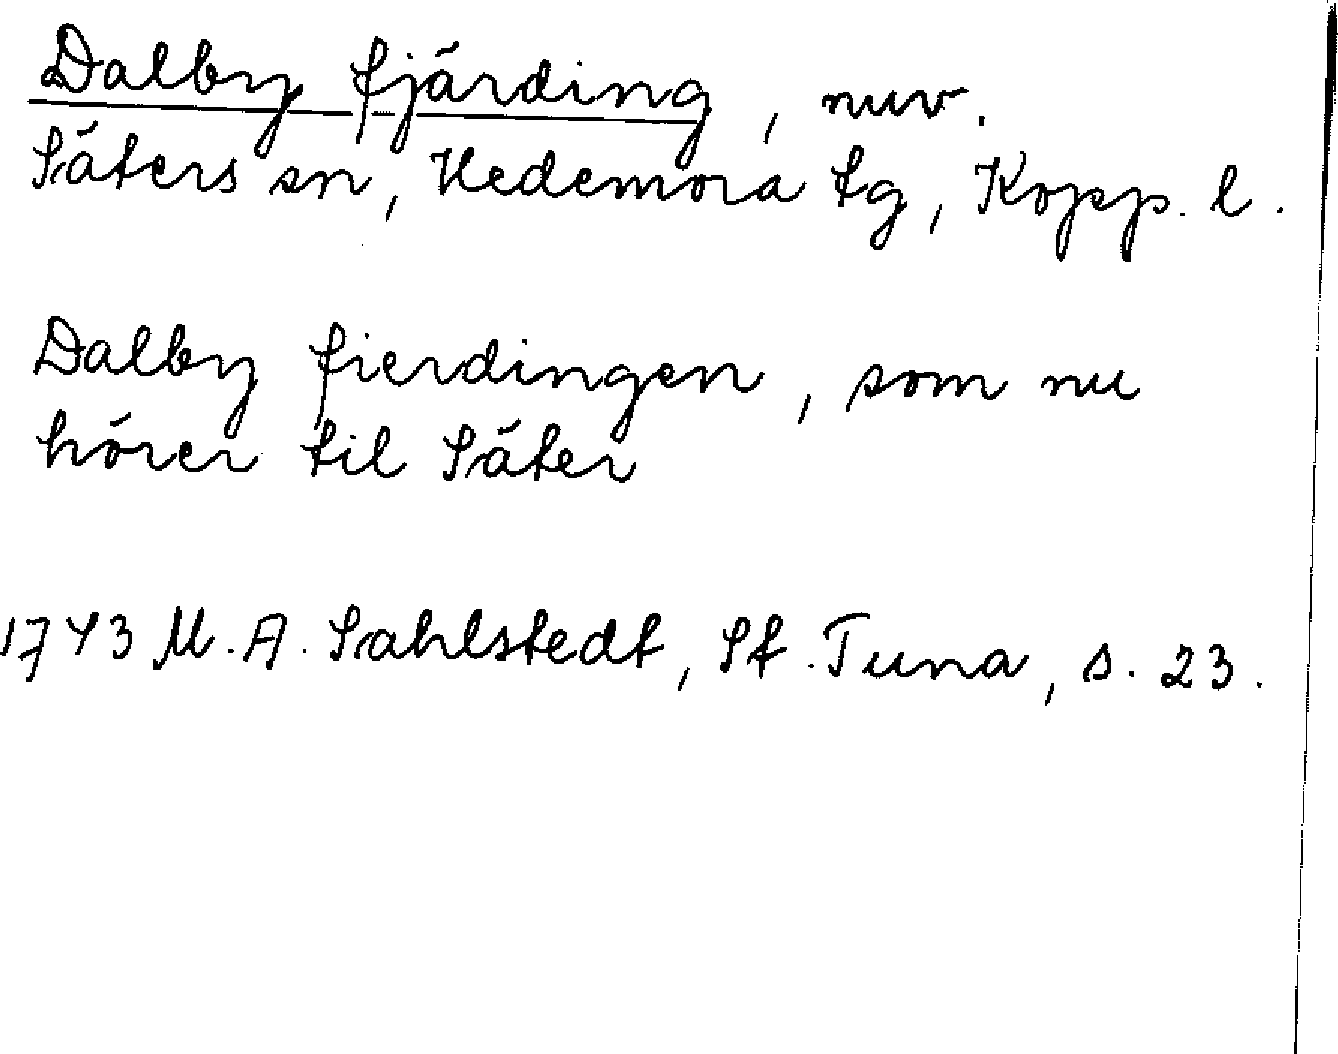 Dalby fjärding, nuv.
Säters sn, Hedemora tg, Kopp. l.
Dalby fierdingen, som nu
hörer til Säter
1743 M. A. Sahlstedt, St. Tuna, s. 23.